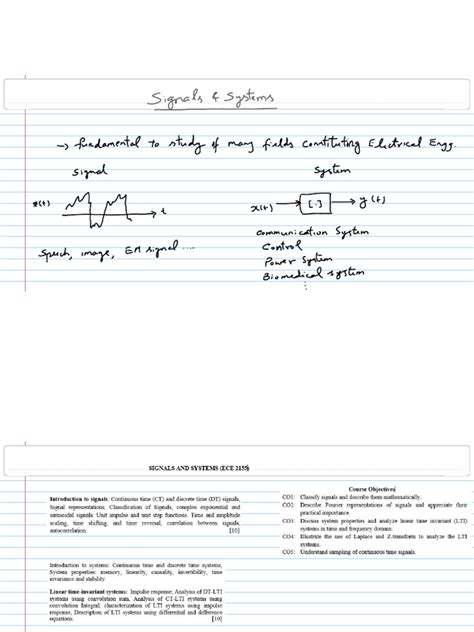 Signals & Systems
→ fundamental to study of many fields constituting Electrical Engg.
Signal
System
x(t)
t
x(t) → [.] → y(t)
Speech, image, EM signal ....
Communication System
Control
Power System
Biomedical system
⋮
SIGNALS AND SYSTEMS (ECE 2155)
Introduction to signals: Continuous time (CT) and discrete time (DT) signals,
Signal representations, Classification of Signals, complex exponential and
sinusoidal signals. Unit impulse and unit step functions. Time and amplitude
scaling, time shifting, and time reversal, correlation between signals,
autocorrelation. [10]
Introduction to systems: Continuous time and discrete time systems,
System properties: memory, linearity, causality, invertibility, time
invariance and stability.
Linear time-invariant systems: Impulse response, Analysis of DT-LTI
systems using convolution sum, Analysis of CT-LTI systems using
convolution Integral, characterization of LTI systems using impulse
response, Description of LTI systems using differential and difference
equations. [10]
Course Objectives
CO1: Classify signals and describe them mathematically.
CO2: Describe Fourier representations of signals and appreciate their
practical importance.
CO3: Discuss system properties and analyze linear time invariant (LTI)
systems in time and frequency domain.
CO4: Illustrate the use of Laplace and Z-transform to analyze the LTI
systems.
CO5: Understand sampling of continuous time signals.